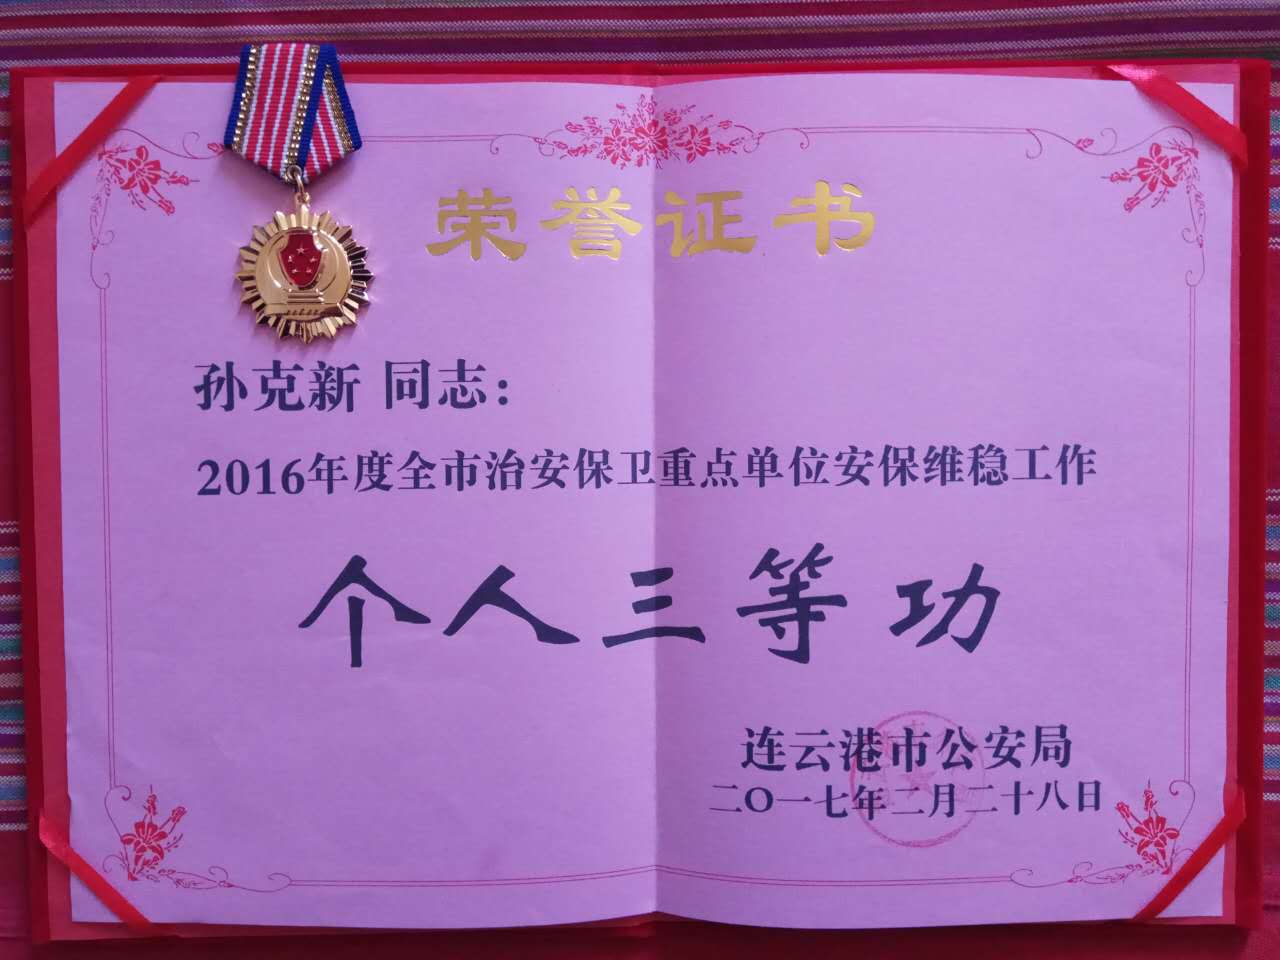 荣誉证书
孙克新 同志：
2016年度全市治安保卫重点单位安保维稳工作
个人三等功
连云港市公安局
二〇一七年二月二十八日